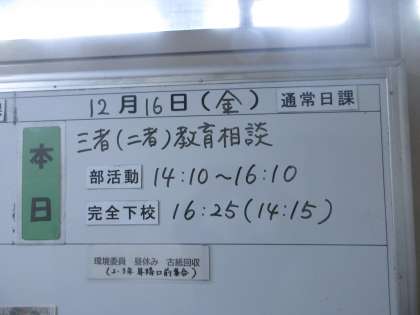 12月16日(金) 通常日課
本日
三者(二者)教育相談
部活動 14:10~16:10
完全下校 16:25(14:15)
環境委員 昼休み 古紙回収
(2・3年 昇降口前集合)